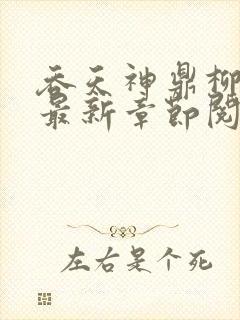 吞天神鼎柳
最新章节阅
左右是个死